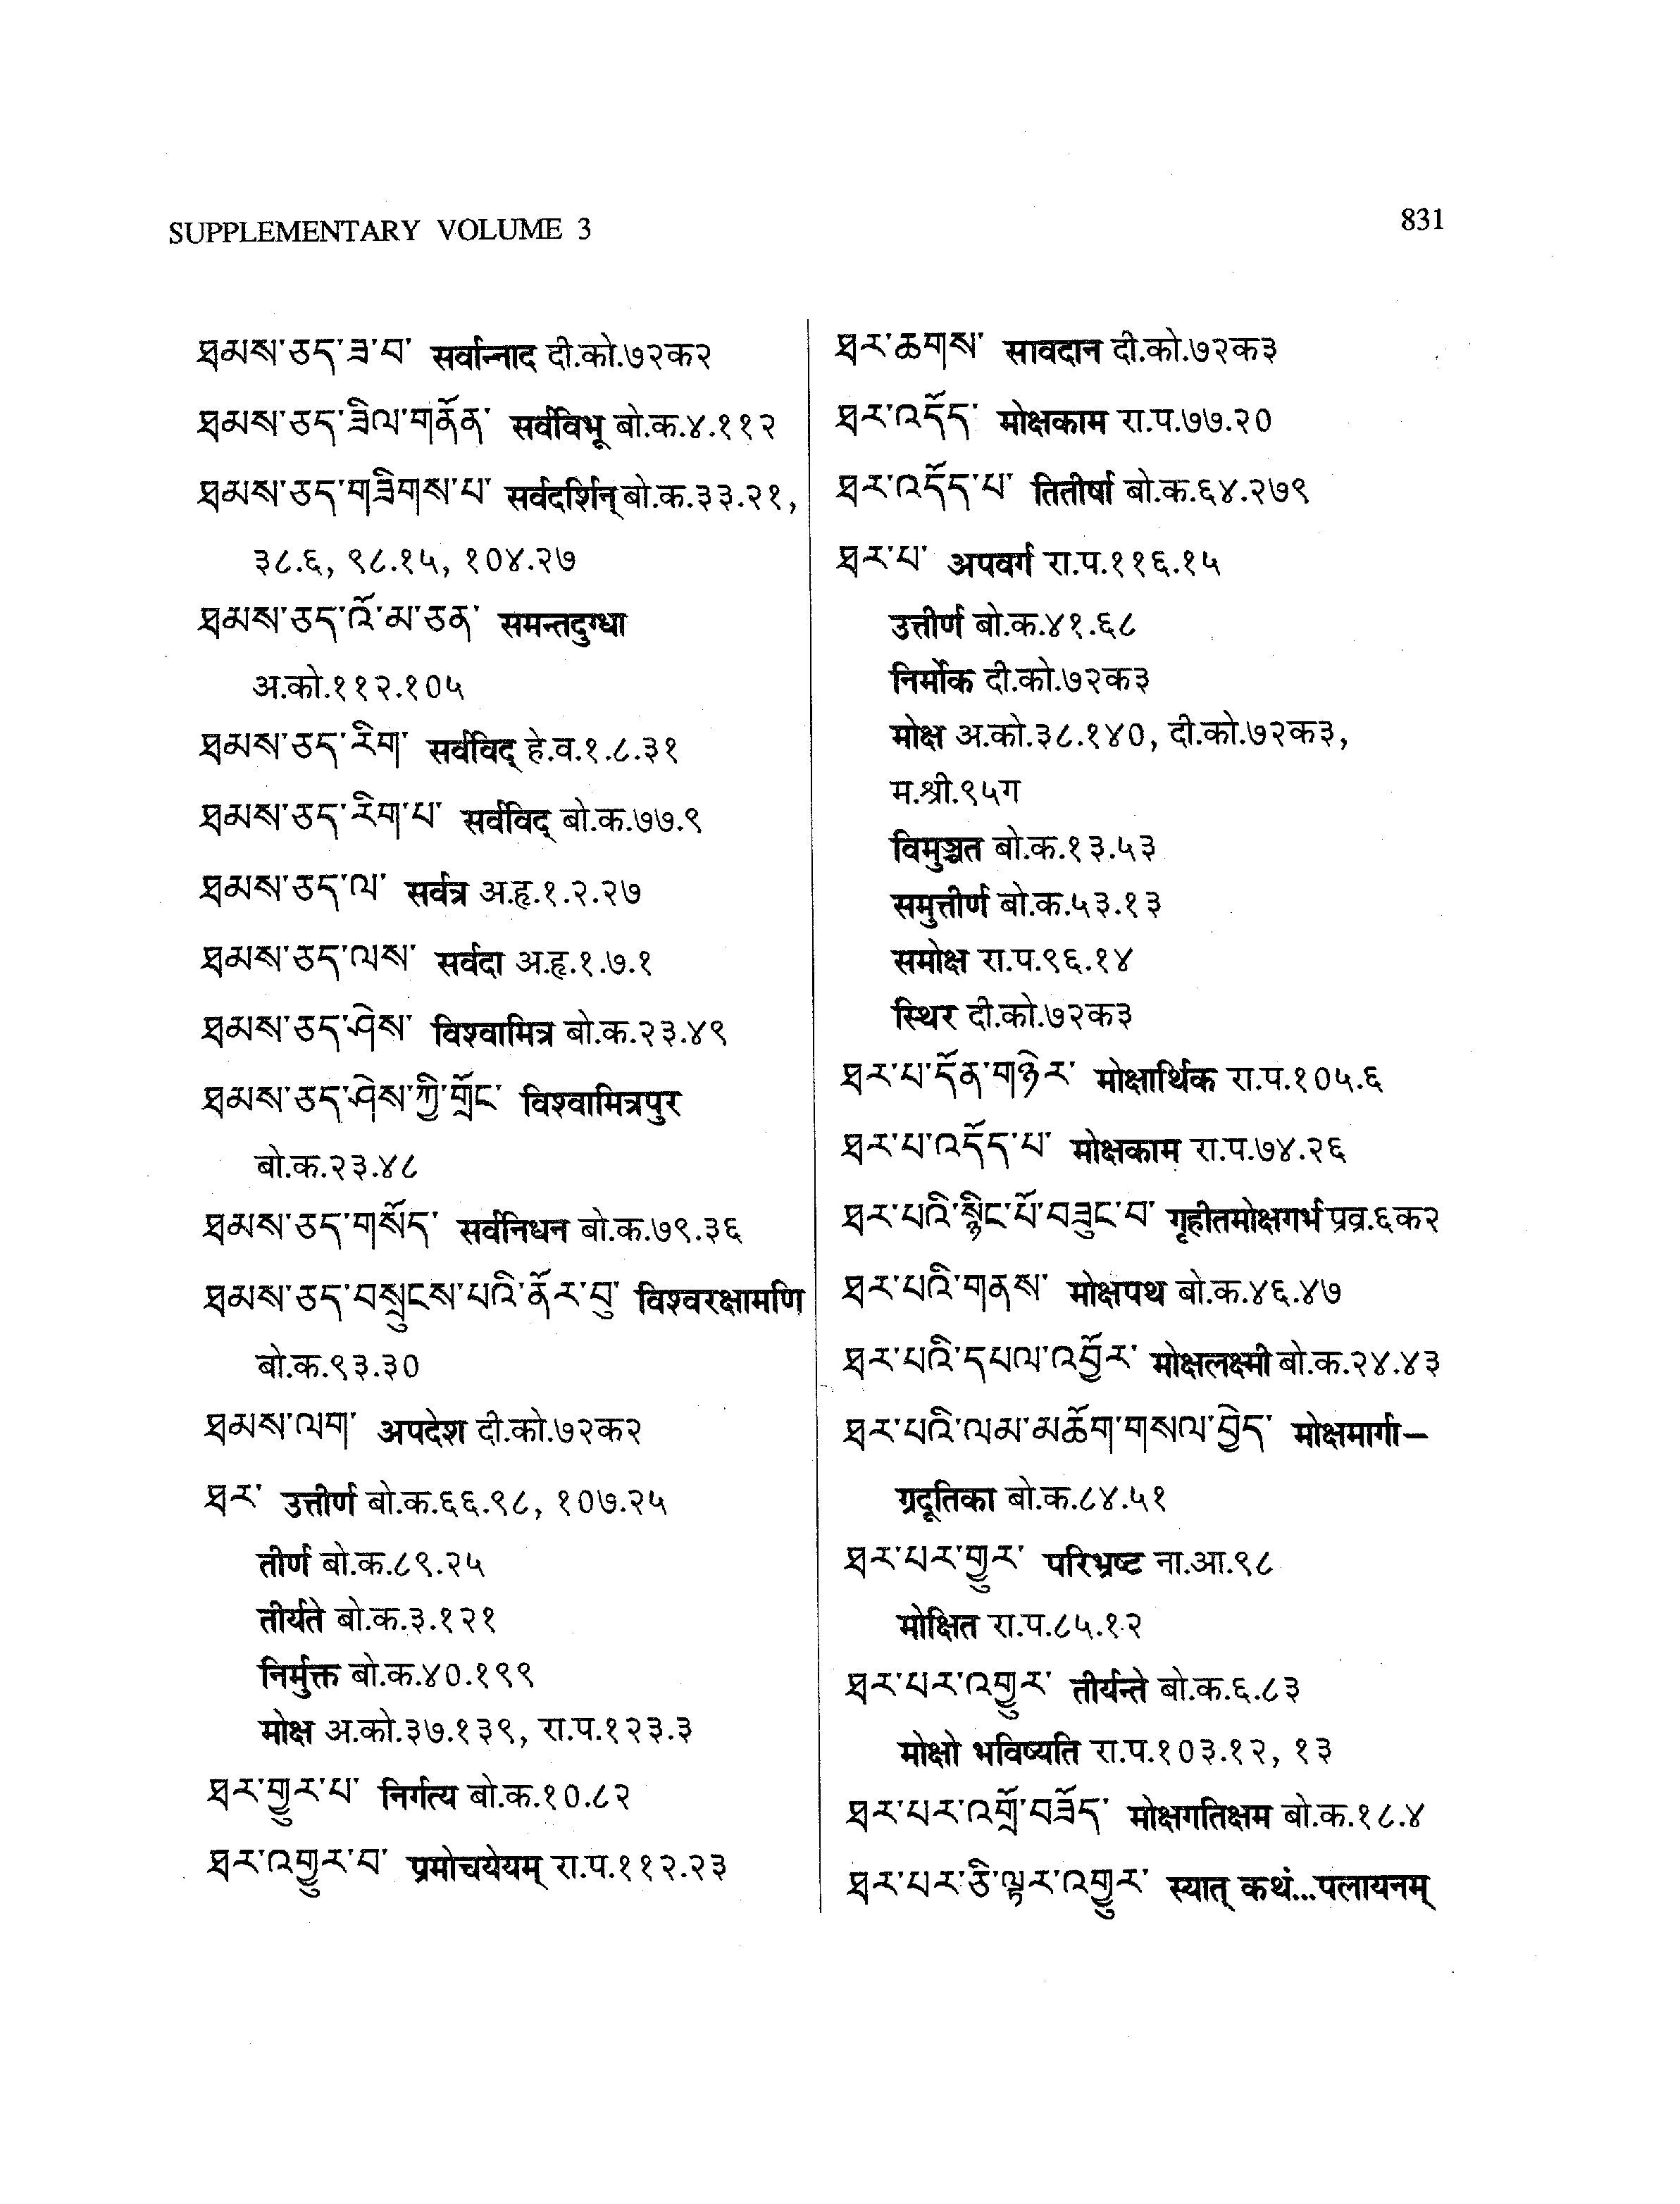 SUPPLEMENTARY VOLUME 3
831
ཐམས་ཅད་ཟ་བ་ सर्वान्नाद दी.को.७२क२
ཐམས་ཅད་ཟིལ་གནོན་ सर्वविभू बो.क.४.११२
ཐམས་ཅད་གཟིགས་པ་ सर्वदर्शिन् बो.क.३३.२१,
३८.६, ९८.१५, १०४.२७
ཐམས་ཅད་འོ་མ་ཅན་ समन्तदुग्धा
अ.को.११२.१०५
ཐམས་ཅད་རིག་ सर्वविद् हे.व.१.८.३१
ཐམས་ཅད་རིག་པ་ सर्वविद् बो.क.७७.९
ཐམས་ཅད་ལ་ सर्वत्र अ.हृ.१.२.२७
ཐམས་ཅད་ལས་ सर्वदा अ.हृ.१.७.१
ཐམས་ཅད་ཤེས་ विश्वामित्र बो.क.२३.४९
ཐམས་ཅད་ཤེས་ཀྱི་གྲོང་ विश्वामित्रपुर
बो.क.२३.४८
ཐམས་ཅད་གསོད་ सर्वनिधन बो.क.७९.३६
ཐམས་ཅད་བསྲུངས་པའི་ནོར་བུ་ विश्वरक्षामणि
बो.क.९३.३०
ཐམས་ལག་ अपदेश दी.को.७२क२
ཐར་ उत्तीर्ण बो.क.६६.९८, १०७.२५
तीर्ण बो.क.८९.२५
तीर्यते बो.क.३.१२१
निर्मुक्त बो.क.४०.१९९
मोक्ष अ.को.३७.१३९, रा.प.१२३.३
ཐར་གྱུར་པ་ निर्गत्य बो.क.१०.८२
ཐར་འགྱུར་བ་ प्रमोचयेयम् रा.प.११२.२३
ཐར་ཆགས་ सावदान दी.को.७२क३
ཐར་འདོད་ मोक्षकाम रा.प.७७.२०
ཐར་འདོད་པ་ तितीर्षा बो.क.६४.२७९
ཐར་པ་ अपवर्ग रा.प.११६.१५
उत्तीर्ण बो.क.४१.६८
निर्मोक दी.को.७२क३
मोक्ष अ.को.३८.१४०, दी.को.७२क३,
म.श्री.९५ग
विमुञ्चत बो.क.१३.५३
समुत्तीर्ण बो.क.५३.१३
समोक्ष रा.प.९६.१४
स्थिर दी.को.७२क३
ཐར་པ་དོན་གཉེར་ मोक्षार्थिक रा.प.१०५.६
ཐར་པ་འདོད་པ་ मोक्षकाम रा.प.७४.२६
ཐར་པའི་སྙིང་པོ་བཟུང་བ་ गृहीतमोक्षगर्भ प्रव्र.६क२
ཐར་པའི་གནས་ मोक्षपथ बो.क.४६.४७
ཐར་པའི་དཔལ་འབྱོར་ मोक्षलक्ष्मी बो.क.२४.४३
ཐར་པའི་ལམ་མཆོག་གསལ་བྱེད་ मोक्षमार्गा–
ग्रदूतिका बो.क.८४.५१
ཐར་པར་གྱུར་ परिभ्रष्ट ना.आ.९८
मोक्षित रा.प.८५.१२
ཐར་པར་འགྱུར་ तीर्यन्ते बो.क.६.८३
मोक्षो भविष्यति रा.प.१०३.१२, १३
ཐར་པར་འགྲོ་བཟོད་ मोक्षगतिक्षम बो.क.१८.४
ཐར་པར་ཅི་ལྟར་འགྱུར་ स्यात् कथं...पलायनम्